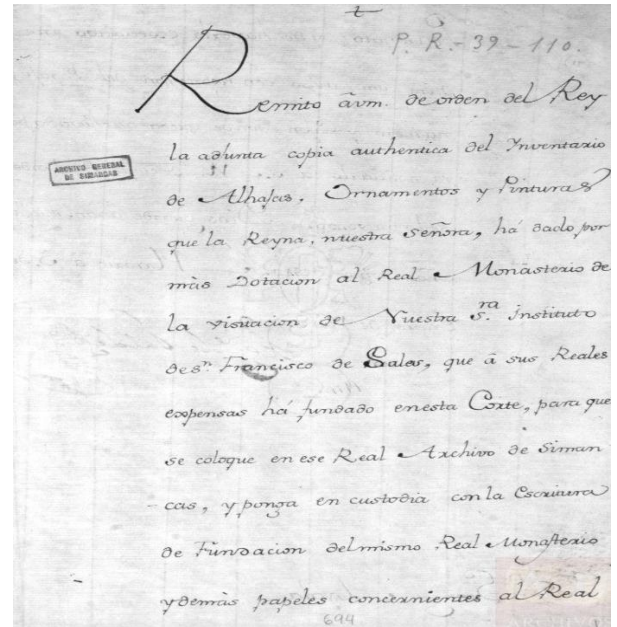 P. R. - 39 - 110.
Remito âvm. de orden del Rey
la adjunta copia authentica del Ynventario
de Alhajas, Ornamentos y Pinturas
que la Reyna, nuestra señora, há dado por
màs Dotacion al Real Monasterio de
la visitacion de Nuestra S.ra instituto
de sn. Francisco de Sales, que â sus Reales
expensas há fundado enesta Corte, para que
se coloque en ese Real Archivo de Siman
cas, y ponga en custodia con la Escritura
de Fundacion del mismo Real Monasterio
y demàs papeles concernientes al Real
ARCHIVO GENERAL
DE SIMANCAS
694
ARCHIVOS